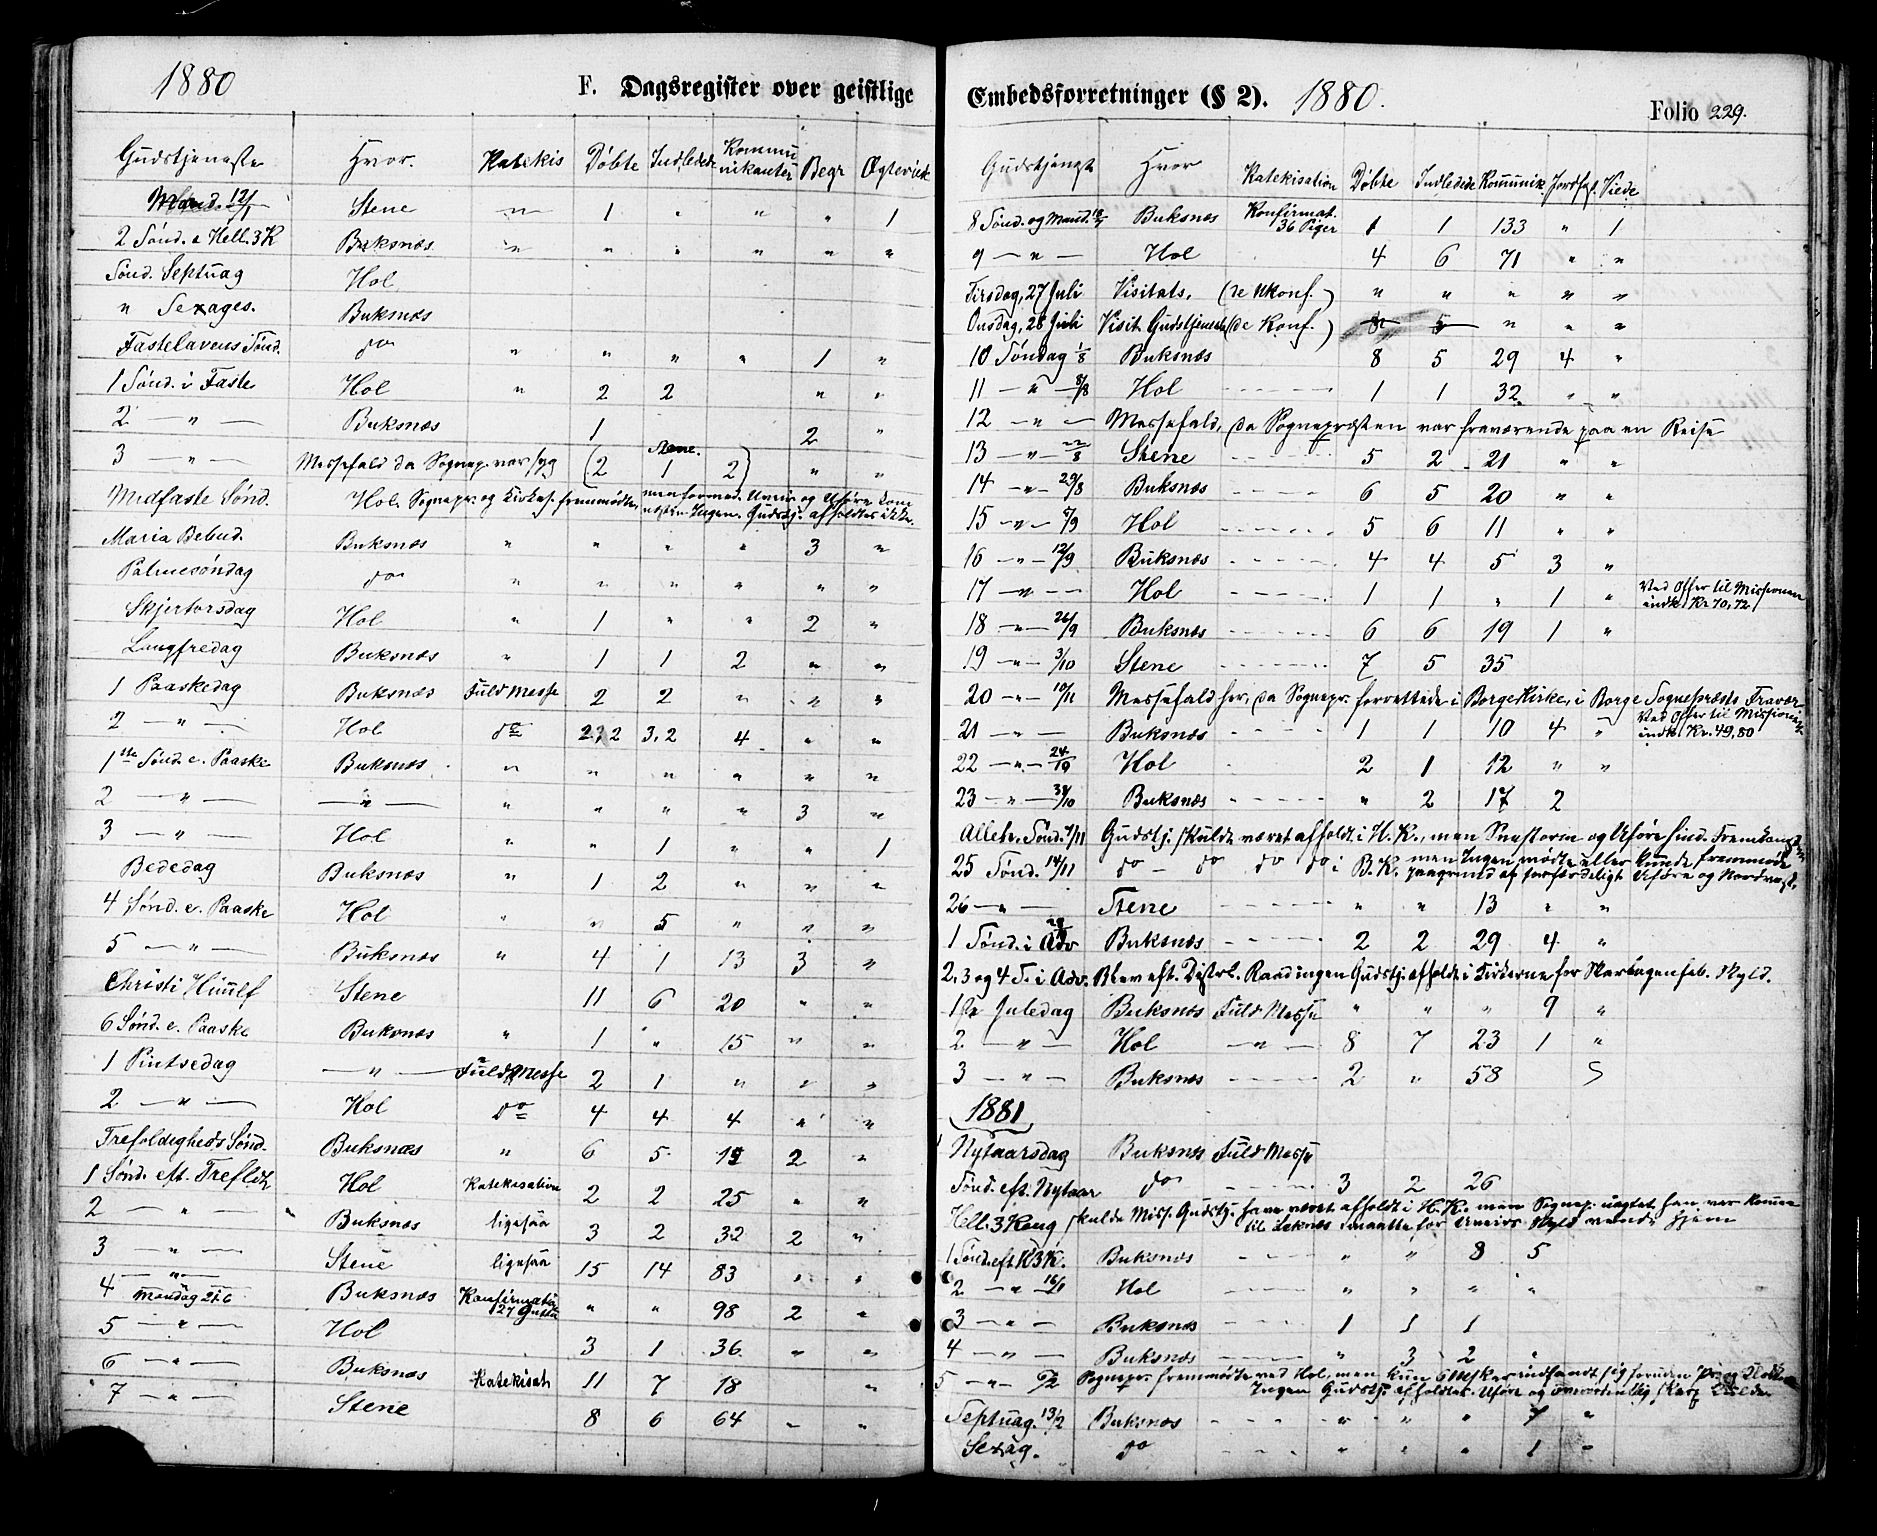 1880
F. Dagsregister over geistlige
Gudstjeneste Hvor. Katekis Döbte Indledede Kommunikanter Begr Ægteviede
Mand. 12/1 Stene " 1 " " " 1
2 Sönd. e Hell. 3 K Buksnæs " " " " " "
Sönd. Septuag Hol
" Sexages. Buksnæs
Fastelavens Sönd. do " " " " 1 "
1 Sönd. i Faste Hol " 2 2 " "
2 — " — Buksnæs 1 2 "
3 — " — Messefald da Sognep. var syg (2 Stene. 1 2) " "
Midfaste Sönd. Hol. Sognepr. og Kirkes. fremmödte, men formed. Uveir og Uföre kom næsten Ingen. Gudstj. afholdtes ikke.
Maria Bebud. Buksnæs " " " " 3 "
Palmesöndag do " " " " " "
Skjertorsdag Hol " 1 " " 2 "
Langfredag Buksnæs " 1 1 2 " "
1 Paaskedag Buksnæs Fuld Messe 2 2 " " "
2 — " — Hol do 2,2 3,2 4 " "
1ste Sönd. e. Paaske Buksnæs " " " " " "
2 — " — — " — " " " " 3 "
3 — " — Hol " " 1 " " 1
Bededag Buksnæs " 1 2 " " "
4 Sönd. e. Paaske Hol " " 5 " " "
5 — " — Buksnæs " 4 1 13 3 "
Christi Himlf Stene 11 6 20 " "
6 Sönd. e. Paaske Buksnæs " 1 " 15 " "
1 Pintsedag — " — Fuld Messe 2 1 " " "
2 — " — Hol do 4 4 4 " "
Trefoldigheds Sönd. Buksnæs " 6 5 19 2 "
1 Sönd. eft. Trefldh Hol Katekisation 2 2 25 " "
2 — " — Buksnæs ligesaa 3 2 32 2 "
3 — " — Stene ligesaa 15 14 83 " "
4 — " — Mandag 21/6 Buksnæs Konfirmation 27 Gutter " " 98 2 "
5 — " — Hol 3 1 36 " "
6 — " — Buksnæs Katekisat 11 7 18 "
7 — " — Stene 8 6 64 " "
Embedsforretninger (§ 2). 1880.
Folio 229.
Gudstjeneste Hvor Katekisation Döbte Indledede Kommunik. Jordfæst. Viede
8 Sönd. og Mand. Buksnæs Konfirmat. 36 Piger 1 1 133 " 1
9 — " — Hol 4 6 71 " "
Tirsdag, 27 Juli Visitats. (de Ukonf.) " " " " "
Onsdag, 28 Juli Visit. Gudstjeneste (de Konf.) 8 5 " " "
10 Söndag 1/8 Buksnæs 8 5 29 4 "
11 — " — 8/8 Hol 1 1 32 " "
12 — " — Messefald, da Sognepræsten var fraværende paa en Reise
13 — " — 22/8 Stene 5 2 21 " "
14 — " — 29/8 Buksnæs 6 5 20 " "
15 — " — 5/9 Hol 5 6 11 " "
16 — " — 12/9 Buksnæs 4 4 5 3 "
17 — " — Hol 1 1 " 1 " Ved Offer til Missionen indk. Kr. 70,72.
18 — " — 26/9 Buksnæs 6 6 19 1 "
19 — " — 3/10 Stene 7 5 35
20 — " — 10/11 Messefald her, da Sognepr. forrettede i Borge Kirke, i Borge Sognepræsts Fravær
21 — " — Buksnæs 1 1 10 4 " Ved Offer til Missionen indk. Kr. 49,80
22 — " — 24/10 Hol 2 1 12 " "
23 — " — 31/10 Buksnæs " 2 17 2
Alleh. Sönd. 7/11 Gudstj. skulde været afholdt i H. K., men Snestorm og Uföre hind. Fremkomst
25 Sönd. 14/11 do — do do do i B. K. men Ingen mödte eller kunde fremmöde paagrund af forfærdeligt Uföre og Nordvest.
26 — " — Stene " " 13 " "
1 Sönd. i Adv Buksnæs 2 2 29 4 "
2, 3 og 4 S. i Adv. Blev eft. Distrl. Raad ingen Gudstj. afholdt i Kirkerne for Skarlagenfeb. Skyld.
1ste Juledag Buksnæs Fuld Messe " " " 9 "
2 — " — Hol — " — 8 7 23 1 "
3 — " — Buksnæs 2 " 58
1881
Nytaarsdag Buksnæs Fuld Messe
Sönd. eft. Nytaar do 3 2 26
Hell. 3 Kong skulde Miss. Gudstj. have været afholdt i H. K. men Sognep. uagtet han var kommen til Leknæs maatte for Uveirs Skyld vende hjem
1 Sönd. eft H3K. Buksnæs " " 8 5
2 — " — 16/1 Hol " " " "
3 — " — Buksnæs 1 1 1
4 — " — Buksnæs " 3 2 "
5 — " — 6/2 Sognepr. fremmödte ved Hol, men kun 6 Msker indfandt sig foruden Ingen Gudstj. afholdtes. Uföre og overordentlig skarp Kulde
Septuag. 13/2 Buksnæs " " " 7 "
Sexag. do " " " 1 "